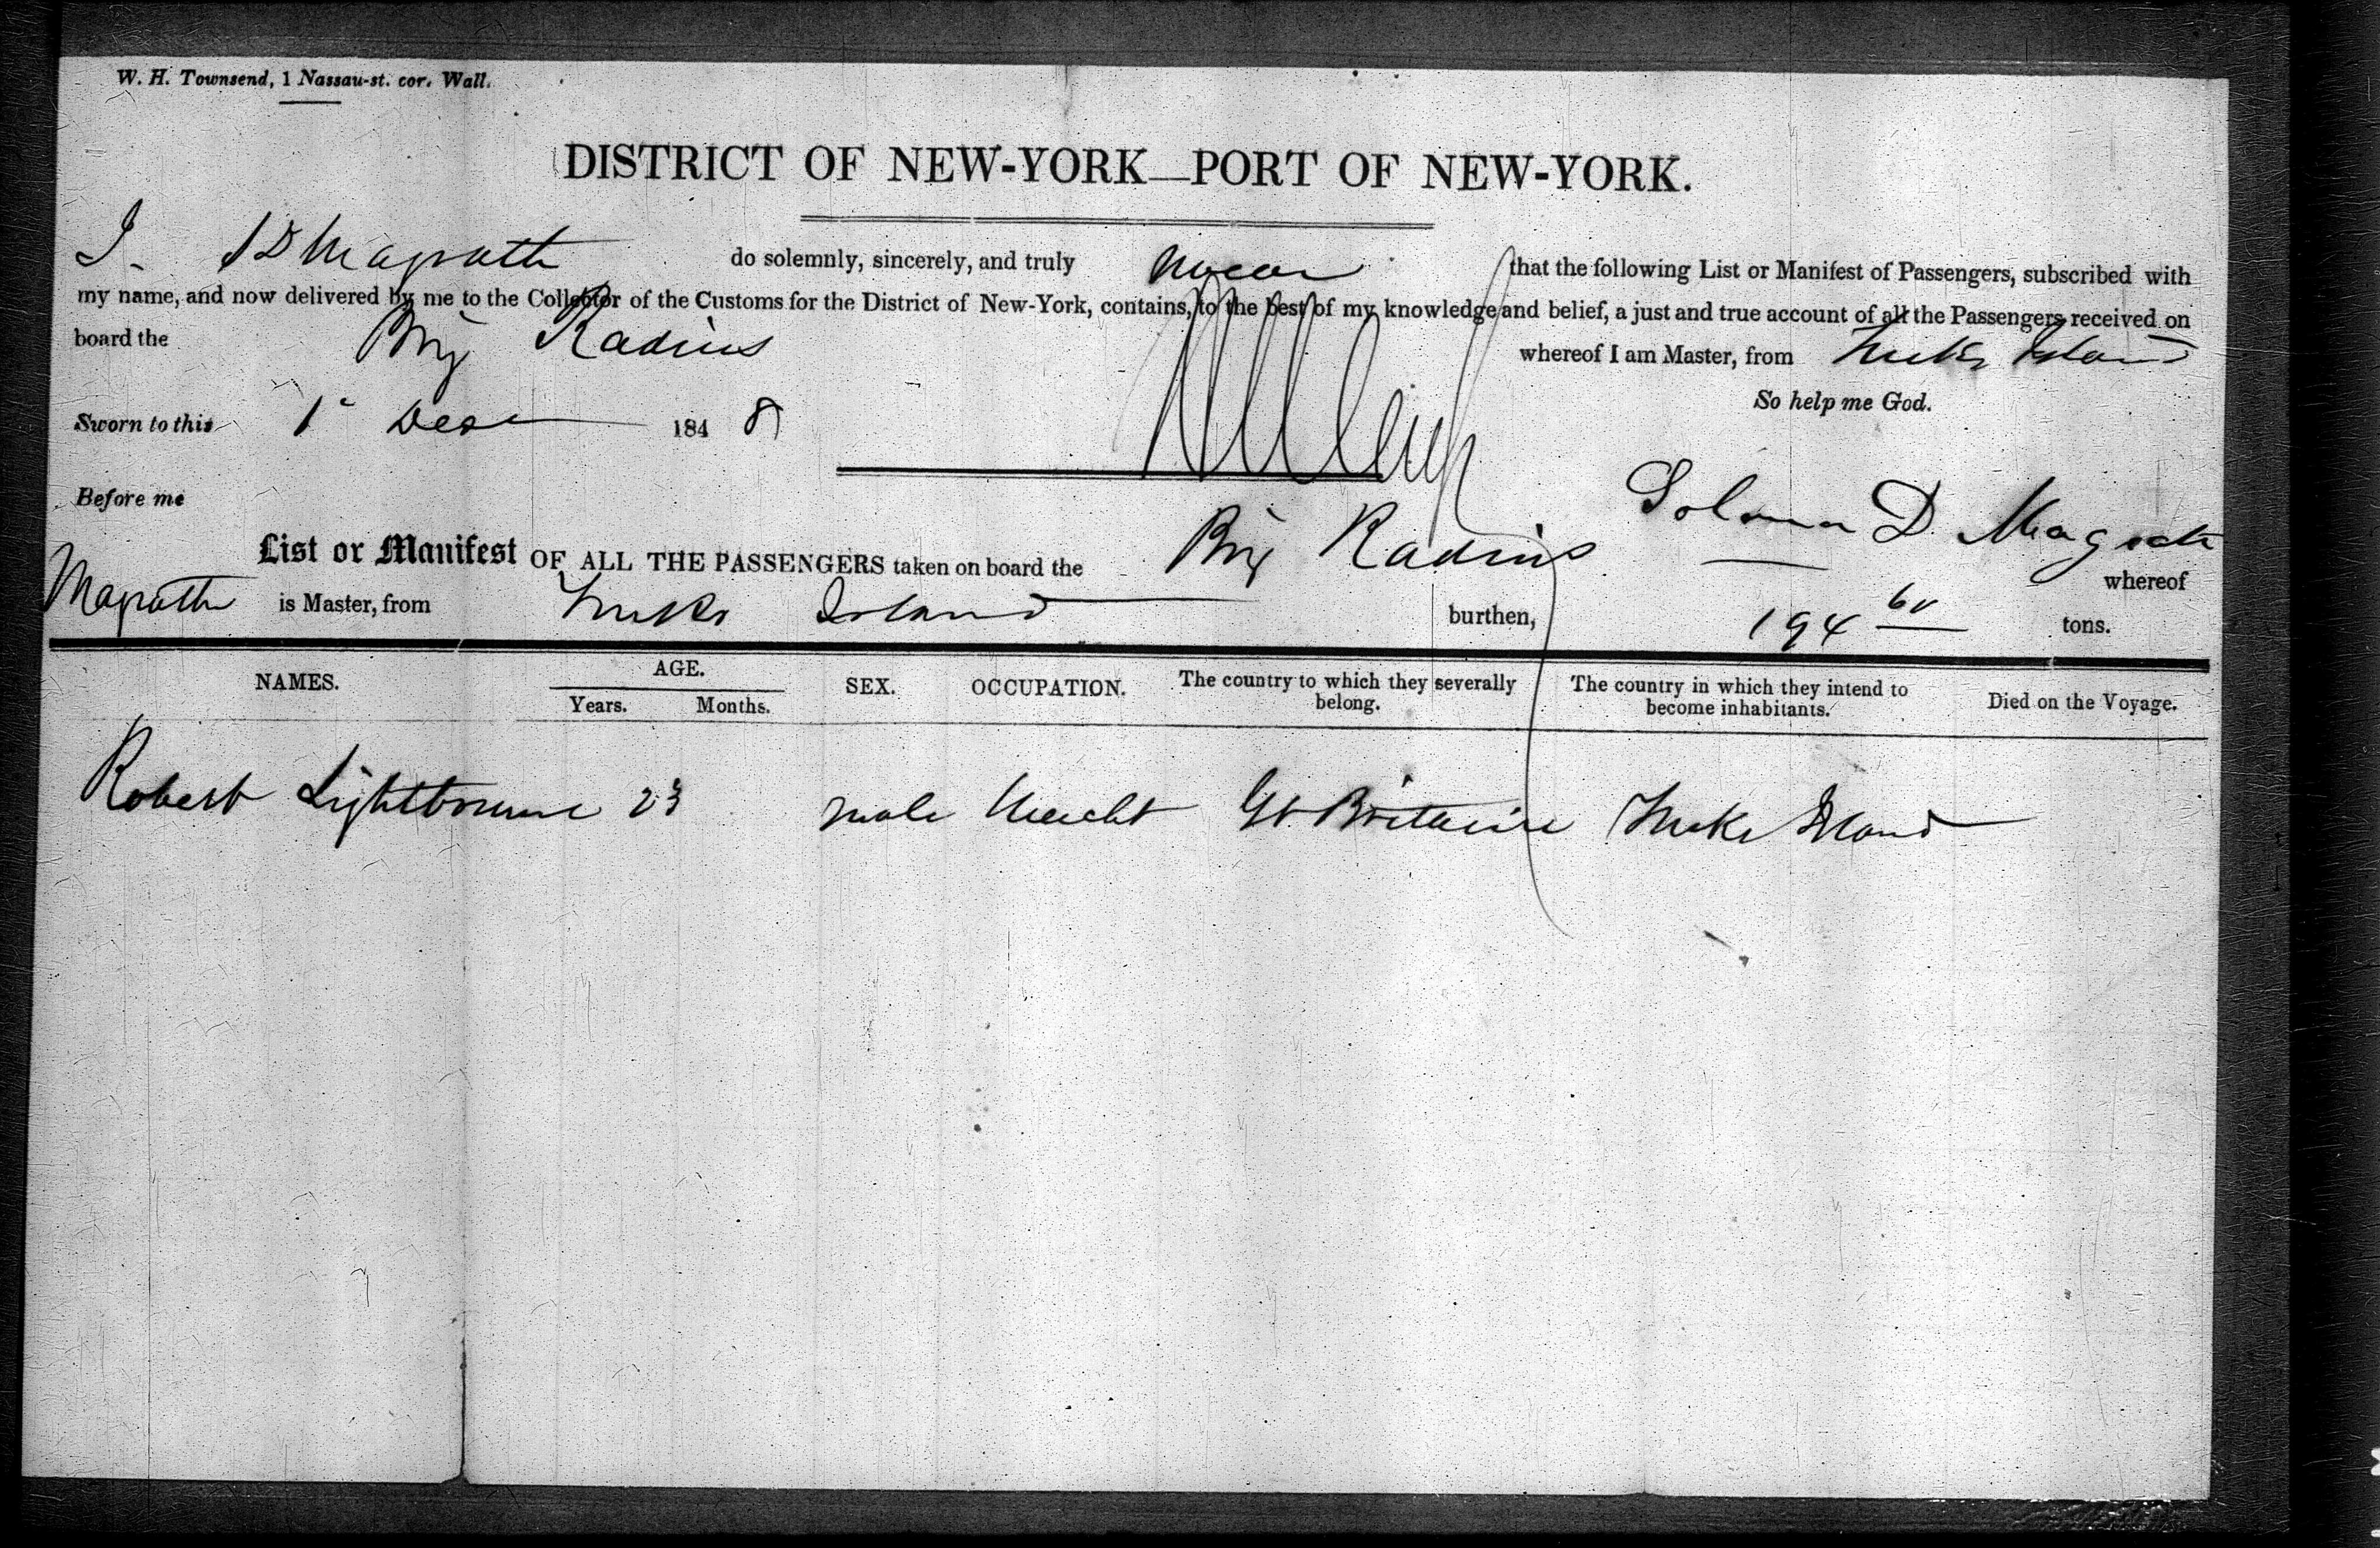 W. H. Townsend, 1 Nassau-st. cor. Wall.
DISTRICT OF NEW-YORK—PORT OF NEW-YORK.
I S D Magrath do solemnly, sincerely, and truly swear that the following List or Manifest of Passengers, subscribed with
my name, and now delivered by me to the Collector of the Customs for the District of New-York, contains, to the best of my knowledge and belief, a just and true account of all the Passengers received on
board the Brig Radius whereof I am Master, from Turks Island
So help me God.
Sworn to this 1 Decr 1848
Before me Solomon D. Magrath
List or Manifest OF ALL THE PASSENGERS taken on board the Brig Radius whereof
Magrath is Master, from Turks Island burthen, 194 tons.
NAMES. AGE. SEX. OCCUPATION. The country to which they severally belong. The country in which they intend to become inhabitants. Died on the Voyage.
Years. Months.
Robert Lightbourne 23 male Mercht Gt Britaine Turks Island